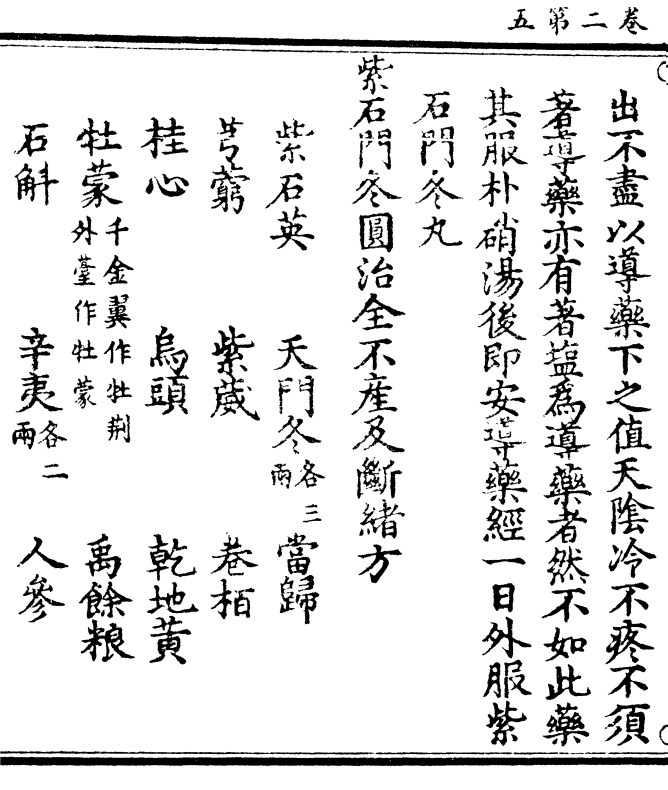 卷二第五
出不盡以導藥下之值天陰冷不疼不須
著導藥亦有著塩爲導藥者然不如此藥
其服朴硝湯後即安導藥經一日外服紫
石門冬丸
紫石門冬圓治全不產及斷緒方
紫石英 天門冬各三兩 當歸
芎藭 紫葳 卷栢
桂心 烏頭 乾地黄
牡蒙千金翼作牡荆外臺作牡蒙 禹餘粮
石斛 辛夷各二兩 人參